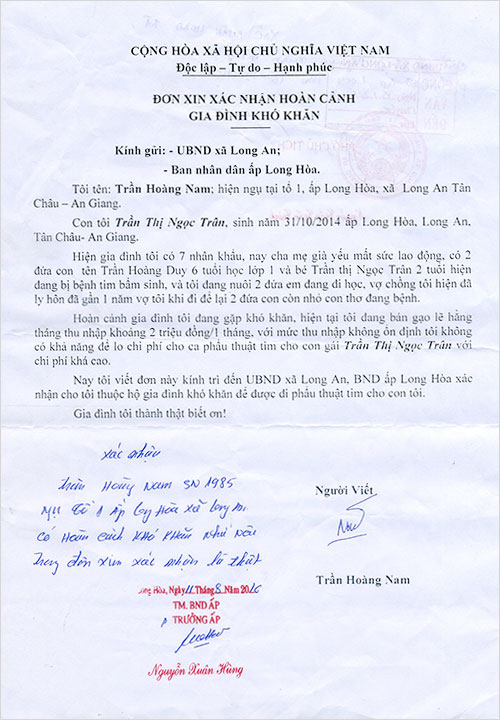 CỘNG HÒA XÃ HỘI CHỦ NGHĨA VIỆT NAM
Độc lập – Tự do – Hạnh phúc
ĐƠN XIN XÁC NHẬN HOÀN CẢNH
GIA ĐÌNH KHÓ KHĂN
Kính gửi: - UBND xã Long An;
- Ban nhân dân ấp Long Hòa.
Tôi tên: Trần Hoàng Nam; hiện ngụ tại tổ 1, ấp Long Hòa, xã Long An Tân
Châu – An Giang.
Con tôi Trần Thị Ngọc Trân, sinh năm 31/10/2014 ấp Long Hòa, Long An,
Tân Châu- An Giang.
Hiện gia đình tôi có 7 nhân khẩu, nay cha mẹ già yếu mất sức lao động, có 2
đứa con tên Trần Hoàng Duy 6 tuổi học lớp 1 và bé Trần thị Ngọc Trân 2 tuổi hiện
đang bị bệnh tim bẩm sinh, và tôi đang nuôi 2 đứa em đang đi học, vợ chồng tôi hiện đã
ly hôn đã gần 1 năm vợ tôi khi đi để lại 2 đứa con còn nhỏ con thơ đang bệnh.
Hoàn cảnh gia đình tôi đang gặp khó khăn, hiện tại tôi đang bán gạo lẽ hằng
tháng thu nhập khoảng 2 triệu đồng/1 tháng, với mức thu nhập không ổn định tôi không
có khả năng để lo chi phí cho ca phẩu thuật tim cho con gái Trần Thị Ngọc Trân với
chi phí khá cao.
Nay tôi viết đơn này kính trì đến UBND xã Long An, BND ấp Long Hòa xác
nhận cho tôi thuộc hộ gia đình khó khăn để được đi phẩu thuật tim cho con tôi.
Gia đình tôi thành thật biết ơn!
xác nhận
Trần Hoàng Nam SN 1985
Ngụ tổ 1 ấp Long Hòa xã Long An
có Hoàn cảnh khó khăn như nêu
Trong đơn xin xác nhận là thiệt
Người Viết
Trần Hoàng Nam
Long Hòa, Ngày 11 Tháng 8 Năm 2016
TM. BND ẤP
TRƯỞNG ẤP
Nguyễn Xuân Hùng